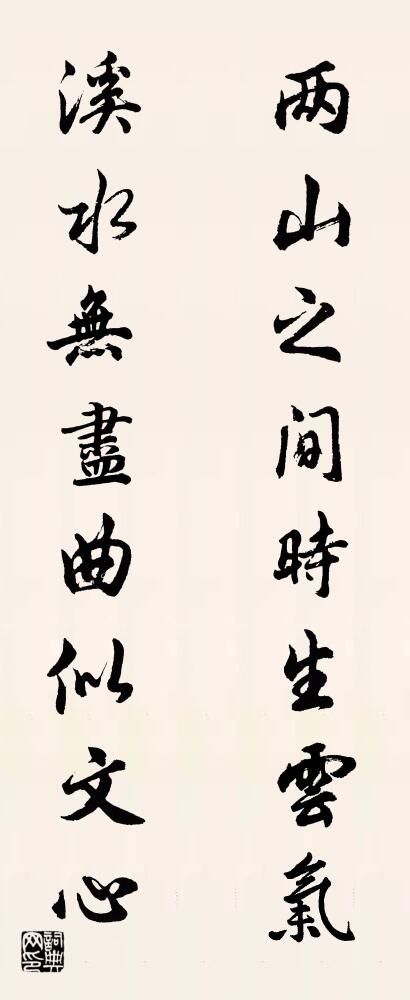 两山之间時生雲氣
溪水無盡曲似文心
詞典网印